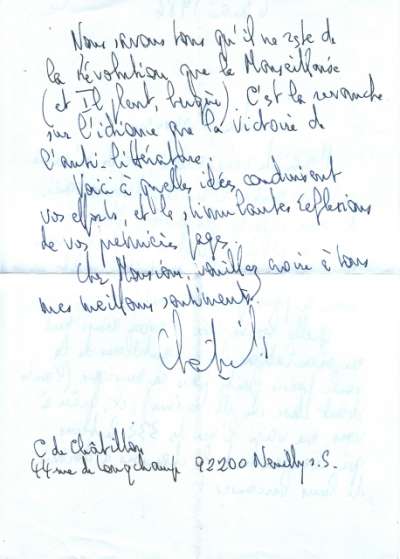 Nous savons tous qu'il ne reste de
la Révolution que la Marseillaise
(et Il pleut, bergère). C'est la revanche
sur l'idiome que la victoire de
l'anti-littérature.
Voici à quelles idées conduisent
vos efforts, et les stimulantes réflexions
de vos premières pages.
Cher Monsieur, veuillez croire à tous
mes meilleurs sentiments.
C de Châtillon
44 rue de Longchamp 92200 Neuilly s.S.